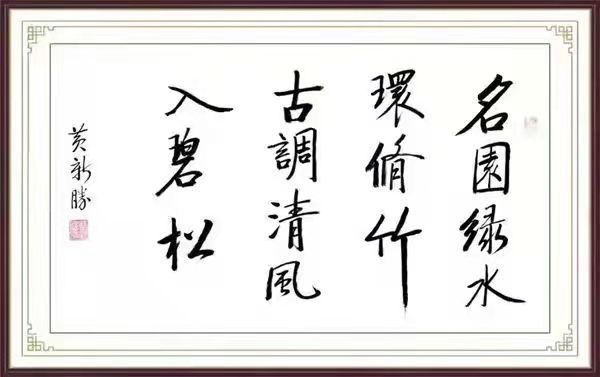 名園绿水
環脩竹
古調清風
入碧松
黄新勝